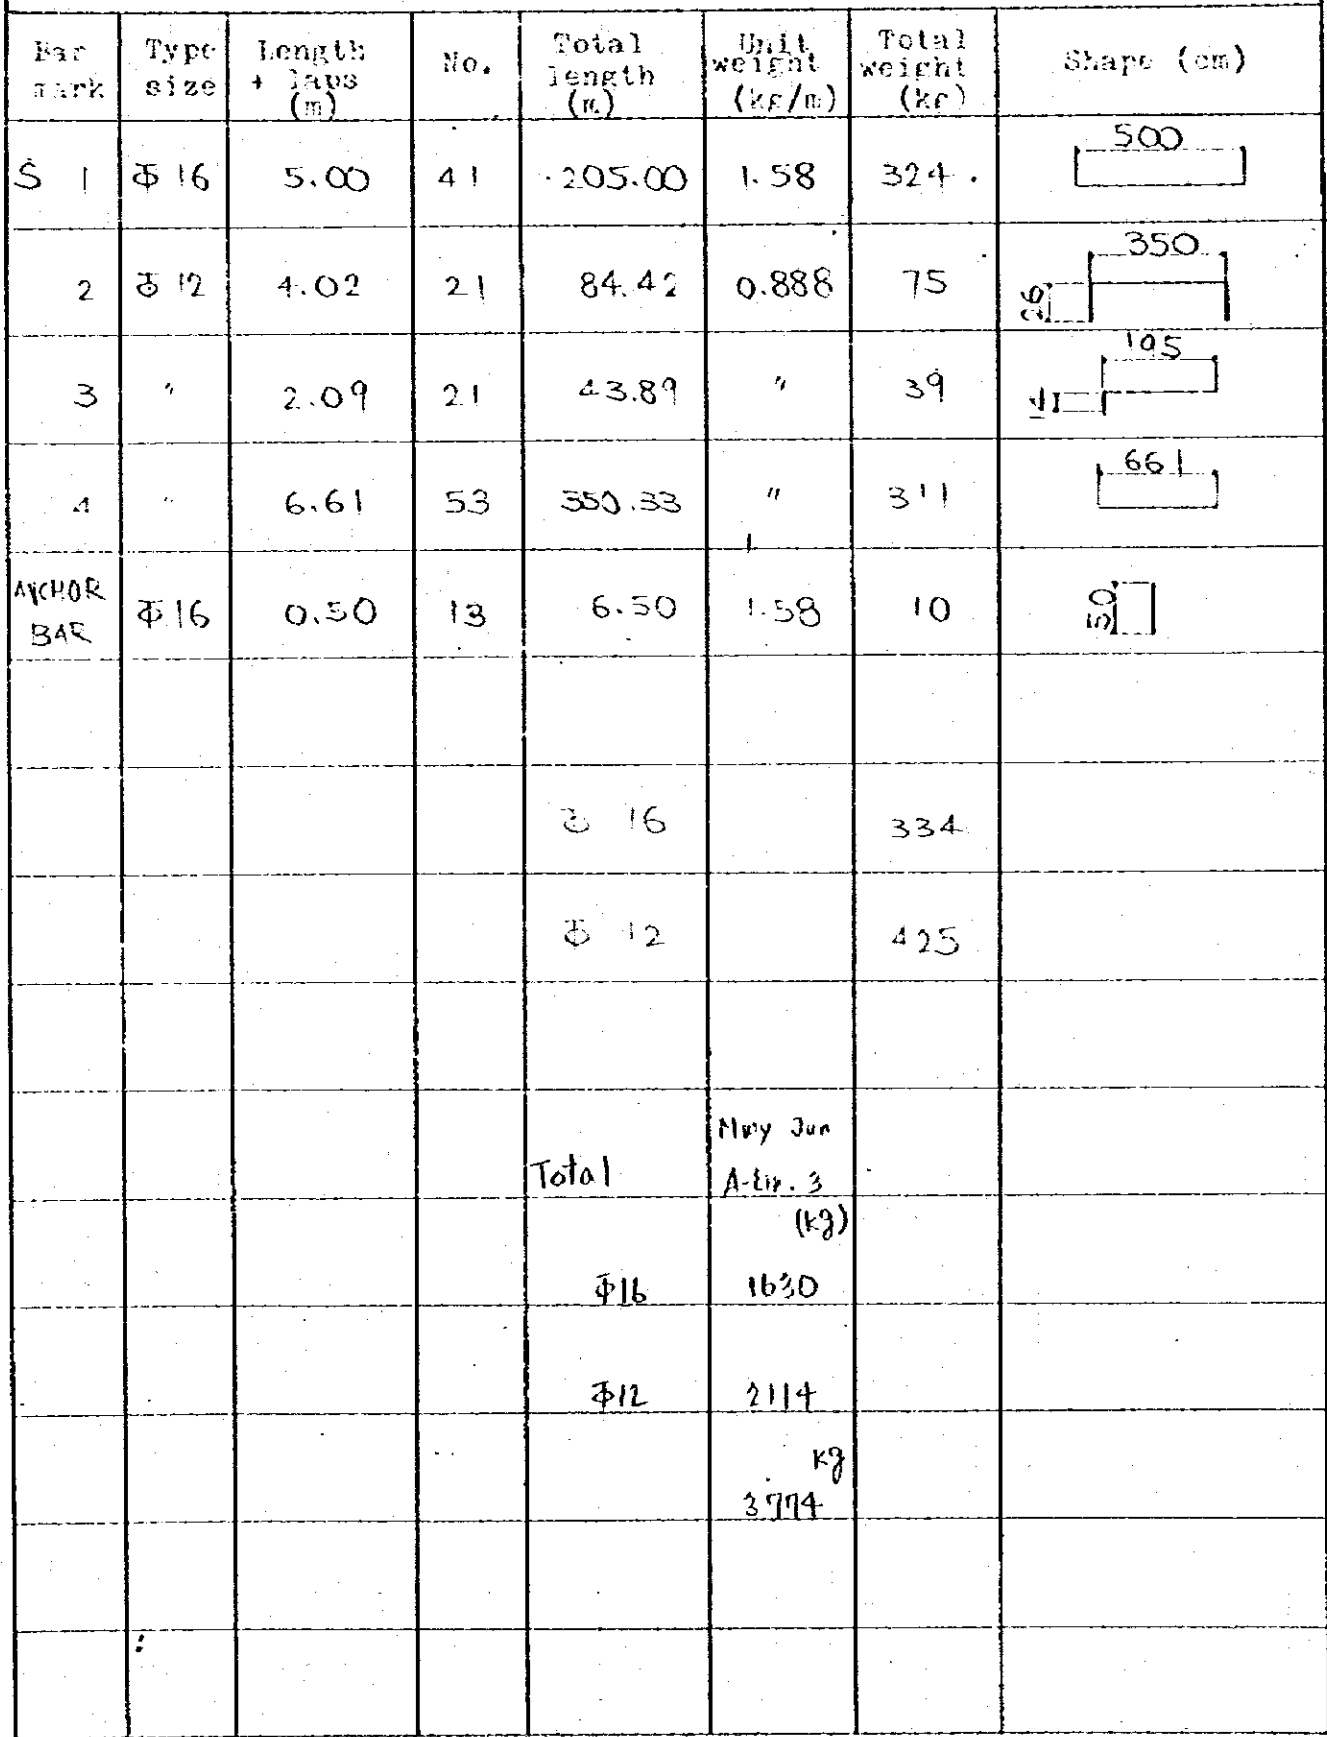 Bar mark Type size Length + laps (m) No. Total length (m) Unit weight (kg/m) Total weight (kg) Shape (cm)
S 1 Φ 16 5.00 41 205.00 1.58 324 500
2 Φ 12 4.02 21 84.42 0.888 75 350 26
3 " 2.09 21 43.89 " 39 195 14
4 " 6.61 53 350.33 " 311 661
ANCHOR BAR Φ 16 0.50 13 6.50 1.58 10 50
Φ 16 334
Φ 12 425
Total Jun
A- 3
(kg)
Φ16 1630
Φ12 2114
kg
3774